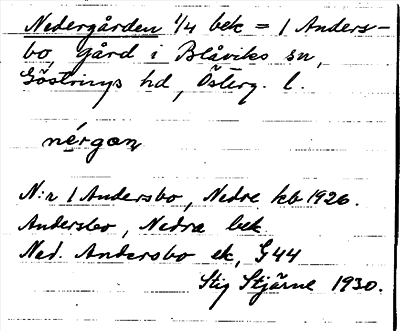 Nedergården 1/4 bek = 1 Anders-
bo, gård i Blåviks sn,
Göstrings hd, Österg. l.
nérgọan
N:r 1 Andersbo, Nedre kb 1926.
Andersbo, Nedra bek.
Ned. Andersbo ek, G44
Stig Stjärne 1930.